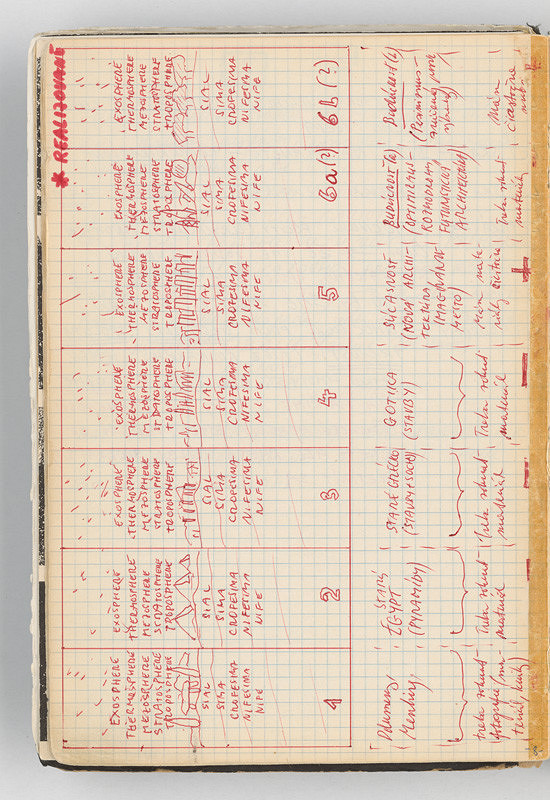 * REALIZOVANÉ
EXOSPHERE
THERMOSPHERE
MEZOSPHERE
STRATOSPHERE
TROPOSPHERE
SIAL
SIMA
CROFESIMA
NIFESIMA
NIFE
1
Dolmeny,
Menhiry,
treba zohnať
fotografie (ma-
teriál knihy)
EXOSPHERE
THERMOSPHERE
MEZOSPHERE
STRATOSPHERE
TROPOSPHERE
SIAL
SIMA
CROFESIMA
NIFESIMA
NIFE
2
STARÝ
EGYPT
(PYRAMÍDY)
Treba zohnať
materiál
EXOSPHERE
THERMOSPHERE
MEZOSPHERE
STRATOSPHERE
TROPOSPHERE
SIAL
SIMA
CROFESIMA
NIFESIMA
NIFE
3
STARÉ GRÉCKO
(STAVBY + SOCHY)
Treba zohnať
materiál
EXOSPHERE
THERMOSPHERE
MEZOSPHERE
STRATOSPHERE
TROPOSPHERE
SIAL
SIMA
CROFESIMA
NIFESIMA
NIFE
4
GOTIKA
(STAVBY)
Treba zohnať
materiál
EXOSPHERE
THERMOSPHERE
MEZOSPHERE
STRATOSPHERE
TROPOSPHERE
SIAL
SIMA
CROFESIMA
NIFESIMA
NIFE
5
SÚČASNOSŤ
(NOVÁ ARCHI-
TEKTÚRA
(IMAGINÁRNE
MESTO)
Mám mate-
riál
EXOSPHERE
THERMOSPHERE
MEZOSPHERE
STRATOSPHERE
TROPOSPHERE
SIAL
SIMA
CROFESIMA
NIFESIMA
NIFE
6a (?)
BUDÚCNOSŤ (a)
(OPTIMIZMUS-
FUTURISTICKÁ
ARCHITEKTÚRA)
Treba zohnať
materiál
EXOSPHERE
THERMOSPHERE
MEZOSPHERE
STRATOSPHERE
TROPOSPHERE
SIAL
SIMA
CROFESIMA
NIFESIMA
NIFE
6b (?)
Budúcnosť (b)
(Pesimizmus-
zničenie
Mám
čiastočne
mat-